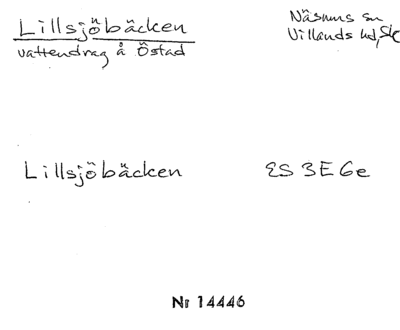 Lillsjöbäcken
vattendrag å Östad
Näsums sn
Villands hd, Sk
Lillsjöbäcken
ES 3E6e
Nr 14446